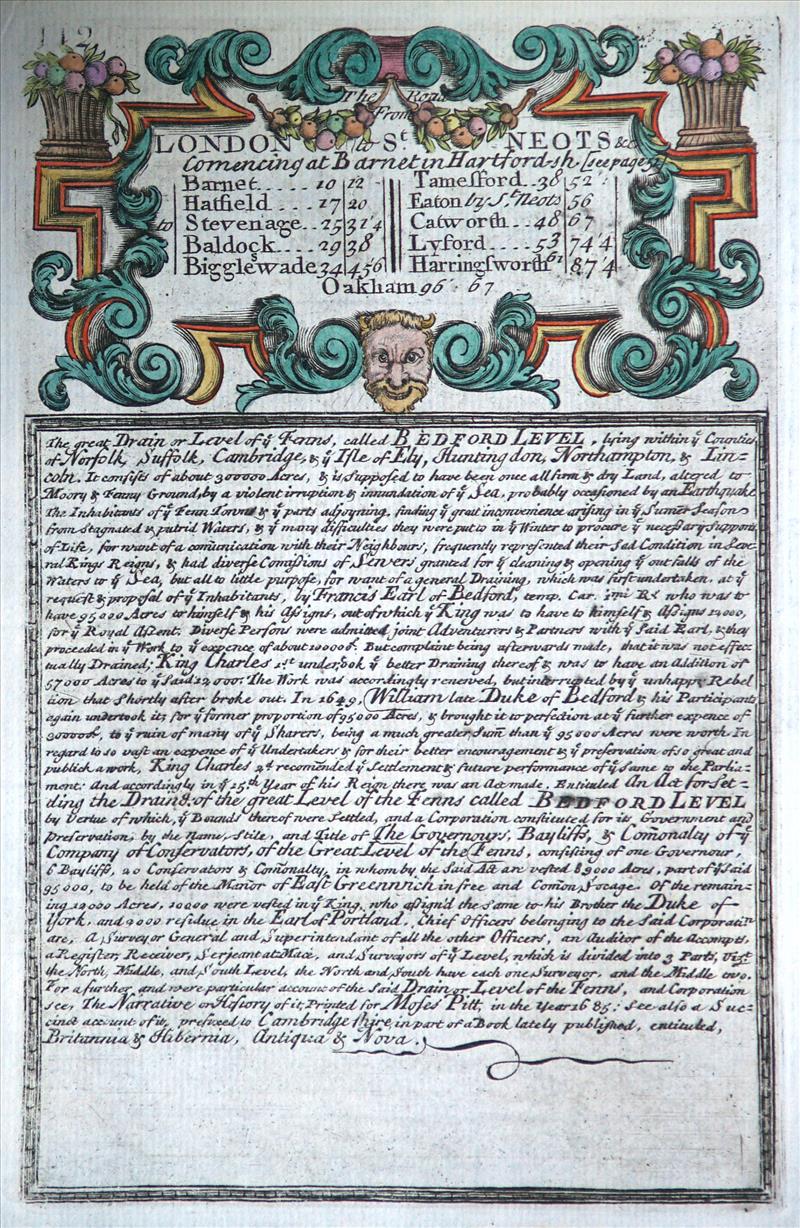 112
The Road
From
LONDON to St NEOTS &c
Comencing at Barnet in Hartford-sh. [see page
Barnet.... 10 | 12
Hatfield.... 17 | 20
to Stevenage.. 25 | 31'4
Baldock.... 29 | 38
Bigglswade 34 | 45'6
Tamesford.. 38 | 52
Eaton by St. Neots | 56
Catworth... 48 | 67
Lyford.... 53 | 74'4
Harringsworth 61 | 87'4
Oakham 96 · 67
The great Drain or Level of ye Fenns, called BEDFORD LEVEL, lying within ye Counties
of Norfolk, Suffolk, Cambridge, & ye Isle of Ely, Huntingdon, Northampton, & Lin=
coln. It consists of about 300000 Acres, & is Supposed to have been once all firm & dry Land, altered to
Moory & Fenny Ground, by a violent irruption & innundation of ye Sea, probably occasioned by an Earthquake
The Inhabitants of ye Fenn Towns & ye parts adjoyning, finding ye great inconvenience arising in ye Sumer Season
from Stagnated & putrid Waters, & ye many difficulties they were put to in ye Winter to procure ye necessary Supports
of Life, for want of a comunication with their Neighbours, frequently represented their Sad Condition in Seve=
ral Kings Reigns, & had diverse Comissions of Sewers granted for ye cleaning & opening ye outfalls of the
Waters to ye Sea, but all to little purpose, for want of a general Draining, which was first undertaken, at ye
request & proposal of ye Inhabitants, by Francis Earl of Bedford, temp. Car. imi Rs who was to
have 95000 Acres to himself & his Assigns, out of which ye King was to have to himself & Assigns 12000,
for ye Royal Assent. Diverse Persons were admitted joint Adventurers & Partners with ye Said Earl, & they
proceeded in ye Work to ye expence of about 100000£. But complaint being afterwards made, that it was not effec=
tually Drained; King Charles 1st undertook ye better Draining thereof & was to have an Addition of
57000 Acres to ye Said 12000: The Work was accordingly renewed, but interrupted by ye unhappy Rebel
lion that Shortly after broke out. In 1649, William late Duke of Bedford & his Participants
again undertook it; for ye former proportion of 95000 Acres, & brought it to perfection at ye further expence of
300000£, to ye ruin of many of ye Sharers, being a much greater Sum than ye 95000 Acres were worth. In
regard to so vast an expence of ye Undertakers & for their better encouragement & ye preservation of so great and
publick a work, King Charles 2d recomended ye Settlement & future performance of ye Same to the Parlia=
ment. And accordingly in ye 15th Year of his Reign there was an Act made, Entituled An Act for Set=
tling the Draing. of the great Level of the Fenns called BEDFORD LEVEL
by Vertue of which, ye Bounds thereof were Settled, and a Corporation constituted for its Government and
Preservation, by the Name, Stile, and Title of The Governours, Bayliffs, & Comonalty of ye
Company of Conservators, of the Great Level of the Fenns, consisting of one Governour,
6 Bayliffs, 20 Conservators & Comonalty, in whom by the Said Act are vested 83000 Acres, part of ye Said
95000, to be held of the Manor of East Greenwich in free and Comon Socage. Of the remain=
ing 12000 Acres, 10000 were vested in ye King, who assign'd the Same to his Brother the Duke of
York, and 2000 residue in the Earl of Portland. Chief Officers belonging to the Said Corporatin
are, A Surveyor General and Superintendant of all the other Officers, an Auditor of the Accompts,
a Register, Receiver, Serjeant at Mace, and Surveyors of ye Level, which is divided into 3 Parts, Vizt.
the North, Middle, and South Level, the North and South have each one Surveyor, and the Middle two.
For a further, and more particular account of the Said Drain or Level of the Fenns, and Corporation
see, The Narrative or History of it, Printed for Moses Pitt, in the Year 1685: See also a Suc=
cinct account of it, prefixed to Cambridge shire, in part of a Book lately published, entituled,
Britannia & Hibernia, Antiqua & Nova.